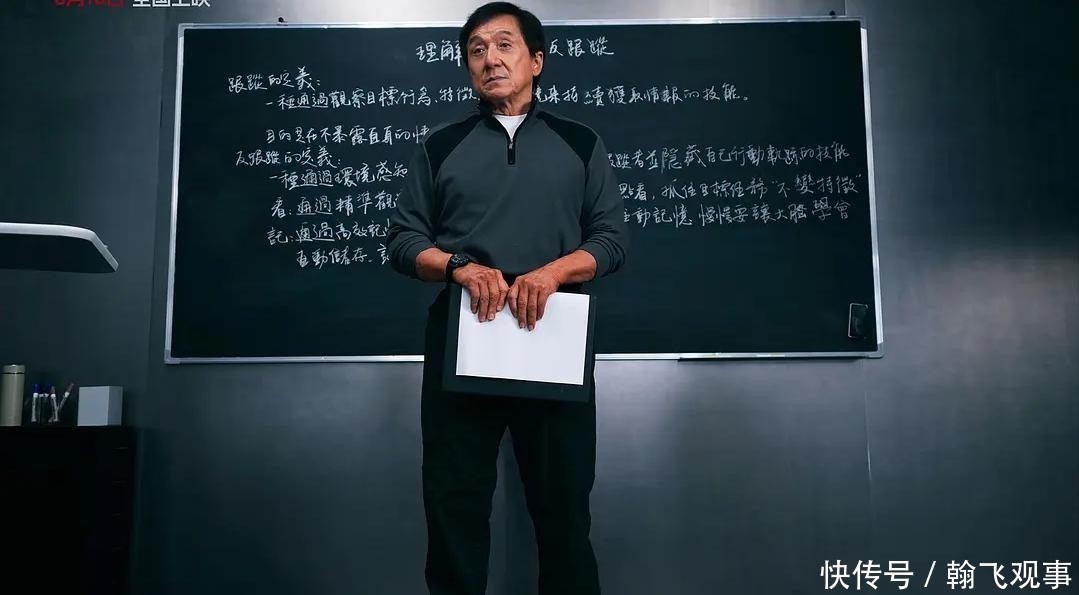 8月16日 全国上映
理解 反跟蹤
跟蹤的定義:
一種通過觀察目標行為、特徵 來持續獲取情報的技能。
目的是在不暴露自身的情
反跟蹤的定義: 跟蹤者並隱藏自己行動軌跡的技能
一種通過環境感知
看:通過精準觀 點看,抓住目標任務“不變特徵”
記:通過高效記 主動記憶,慢慢要讓大腦學會
自動儲存、
快传号 / 翰飞观事